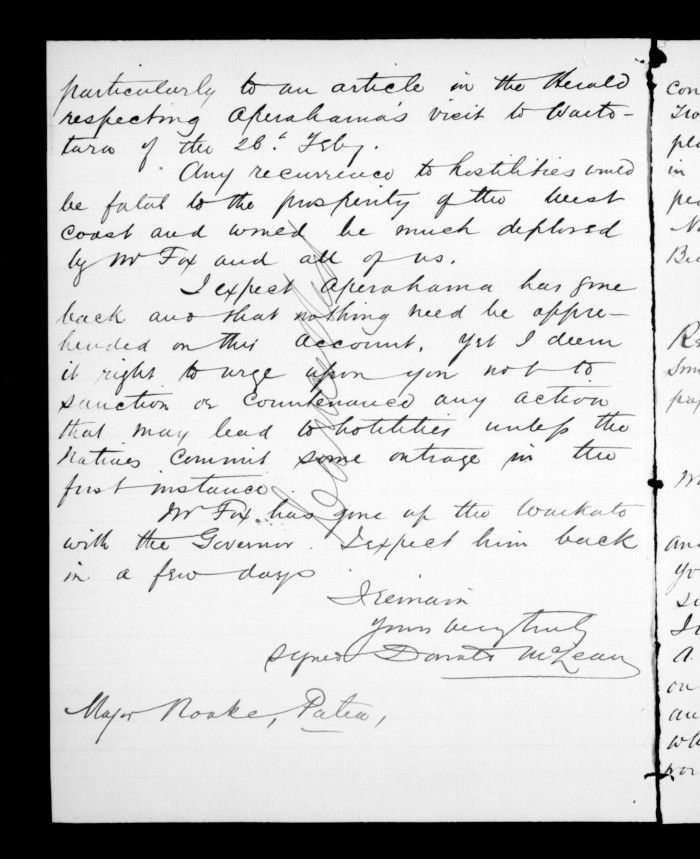 particularly to an article in the Herald
respecting Aperahama's visit to Waito-
tara of the 26th Feby.
Any recurrence to hostilities would
be fatal to the prosperity of the West
Coast and would be much deplored
by Mr Fox and all of us.
I expect Aperahama has gone
back and that nothing need be appre-
hended on this account, yet I deem
it right to urge upon you not to
sanction or countenance any action
that may lead to hostilities unless the
Natives commit some outrage in the
first instance.
Mr Fox has gone up the Waikato
with the Governor. I expect him back
in a few days
I remain
Yours very truly
signed Donald McLean
Major Rooke, Patea,